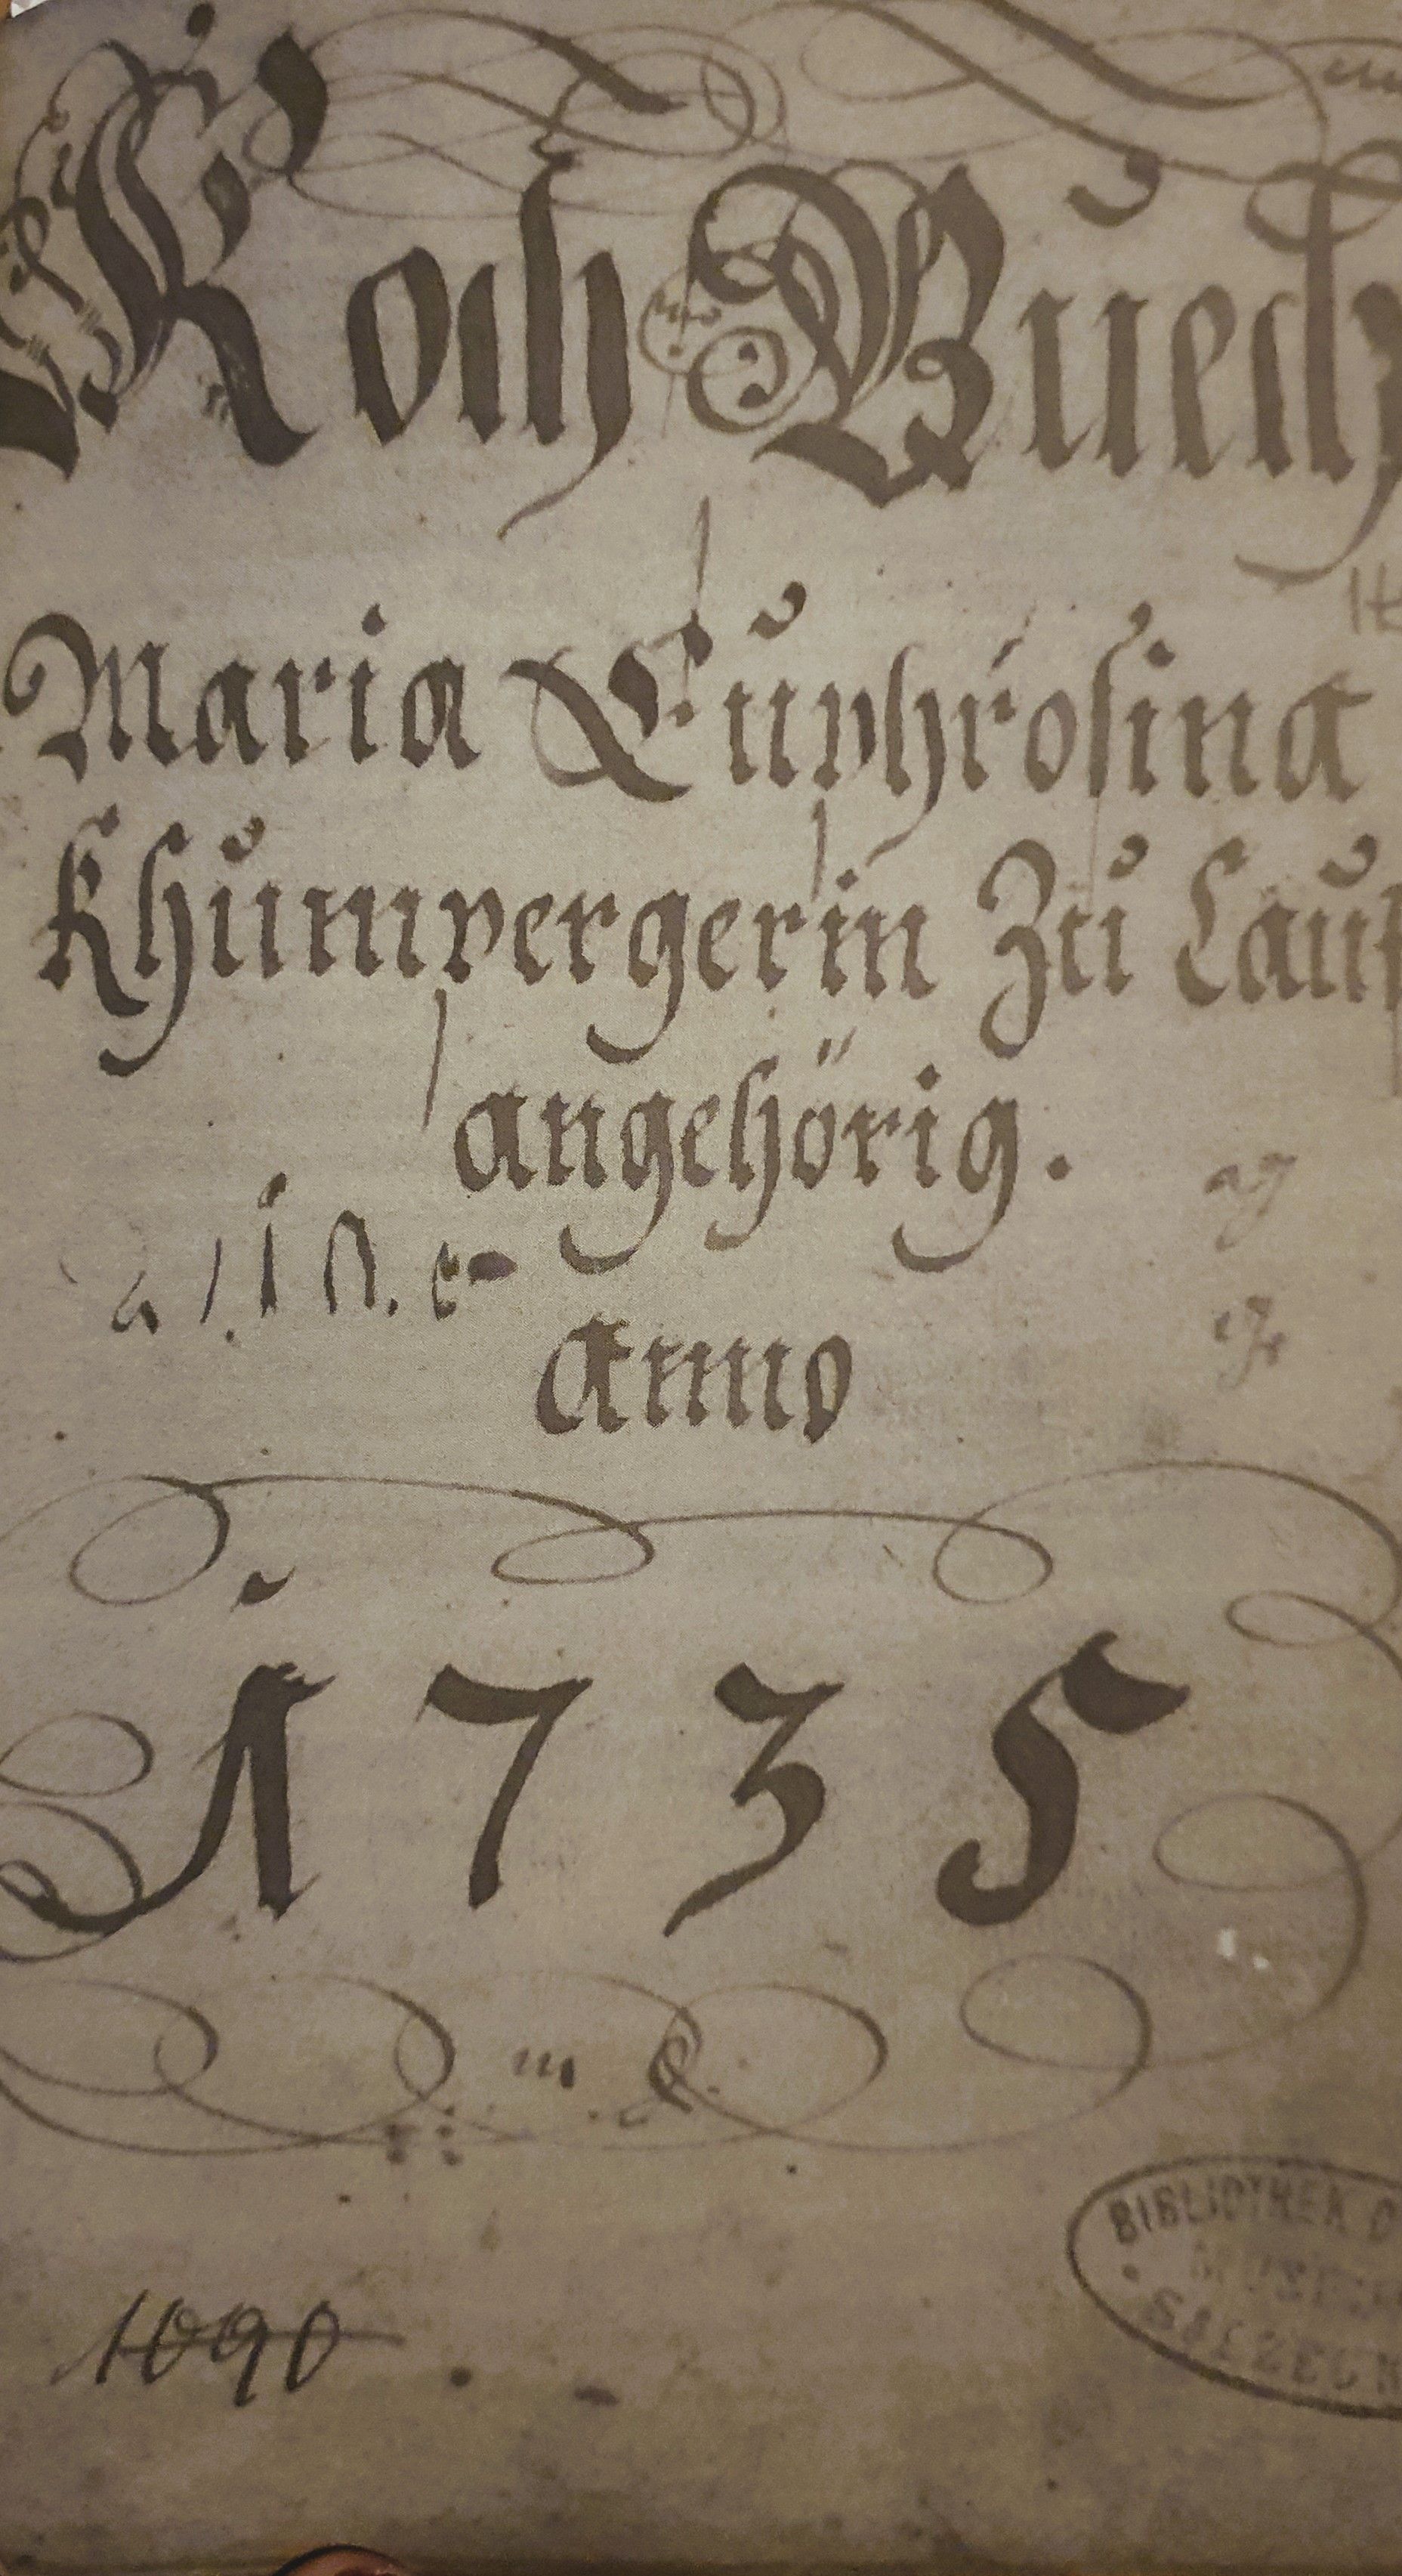 Koch Buech
Maria Euphrosina
Khumpergerin Zu Lauf
angehörig.
Anno
1735
1090
BIBLIOTHEK D
MUSEU
SALZBUR